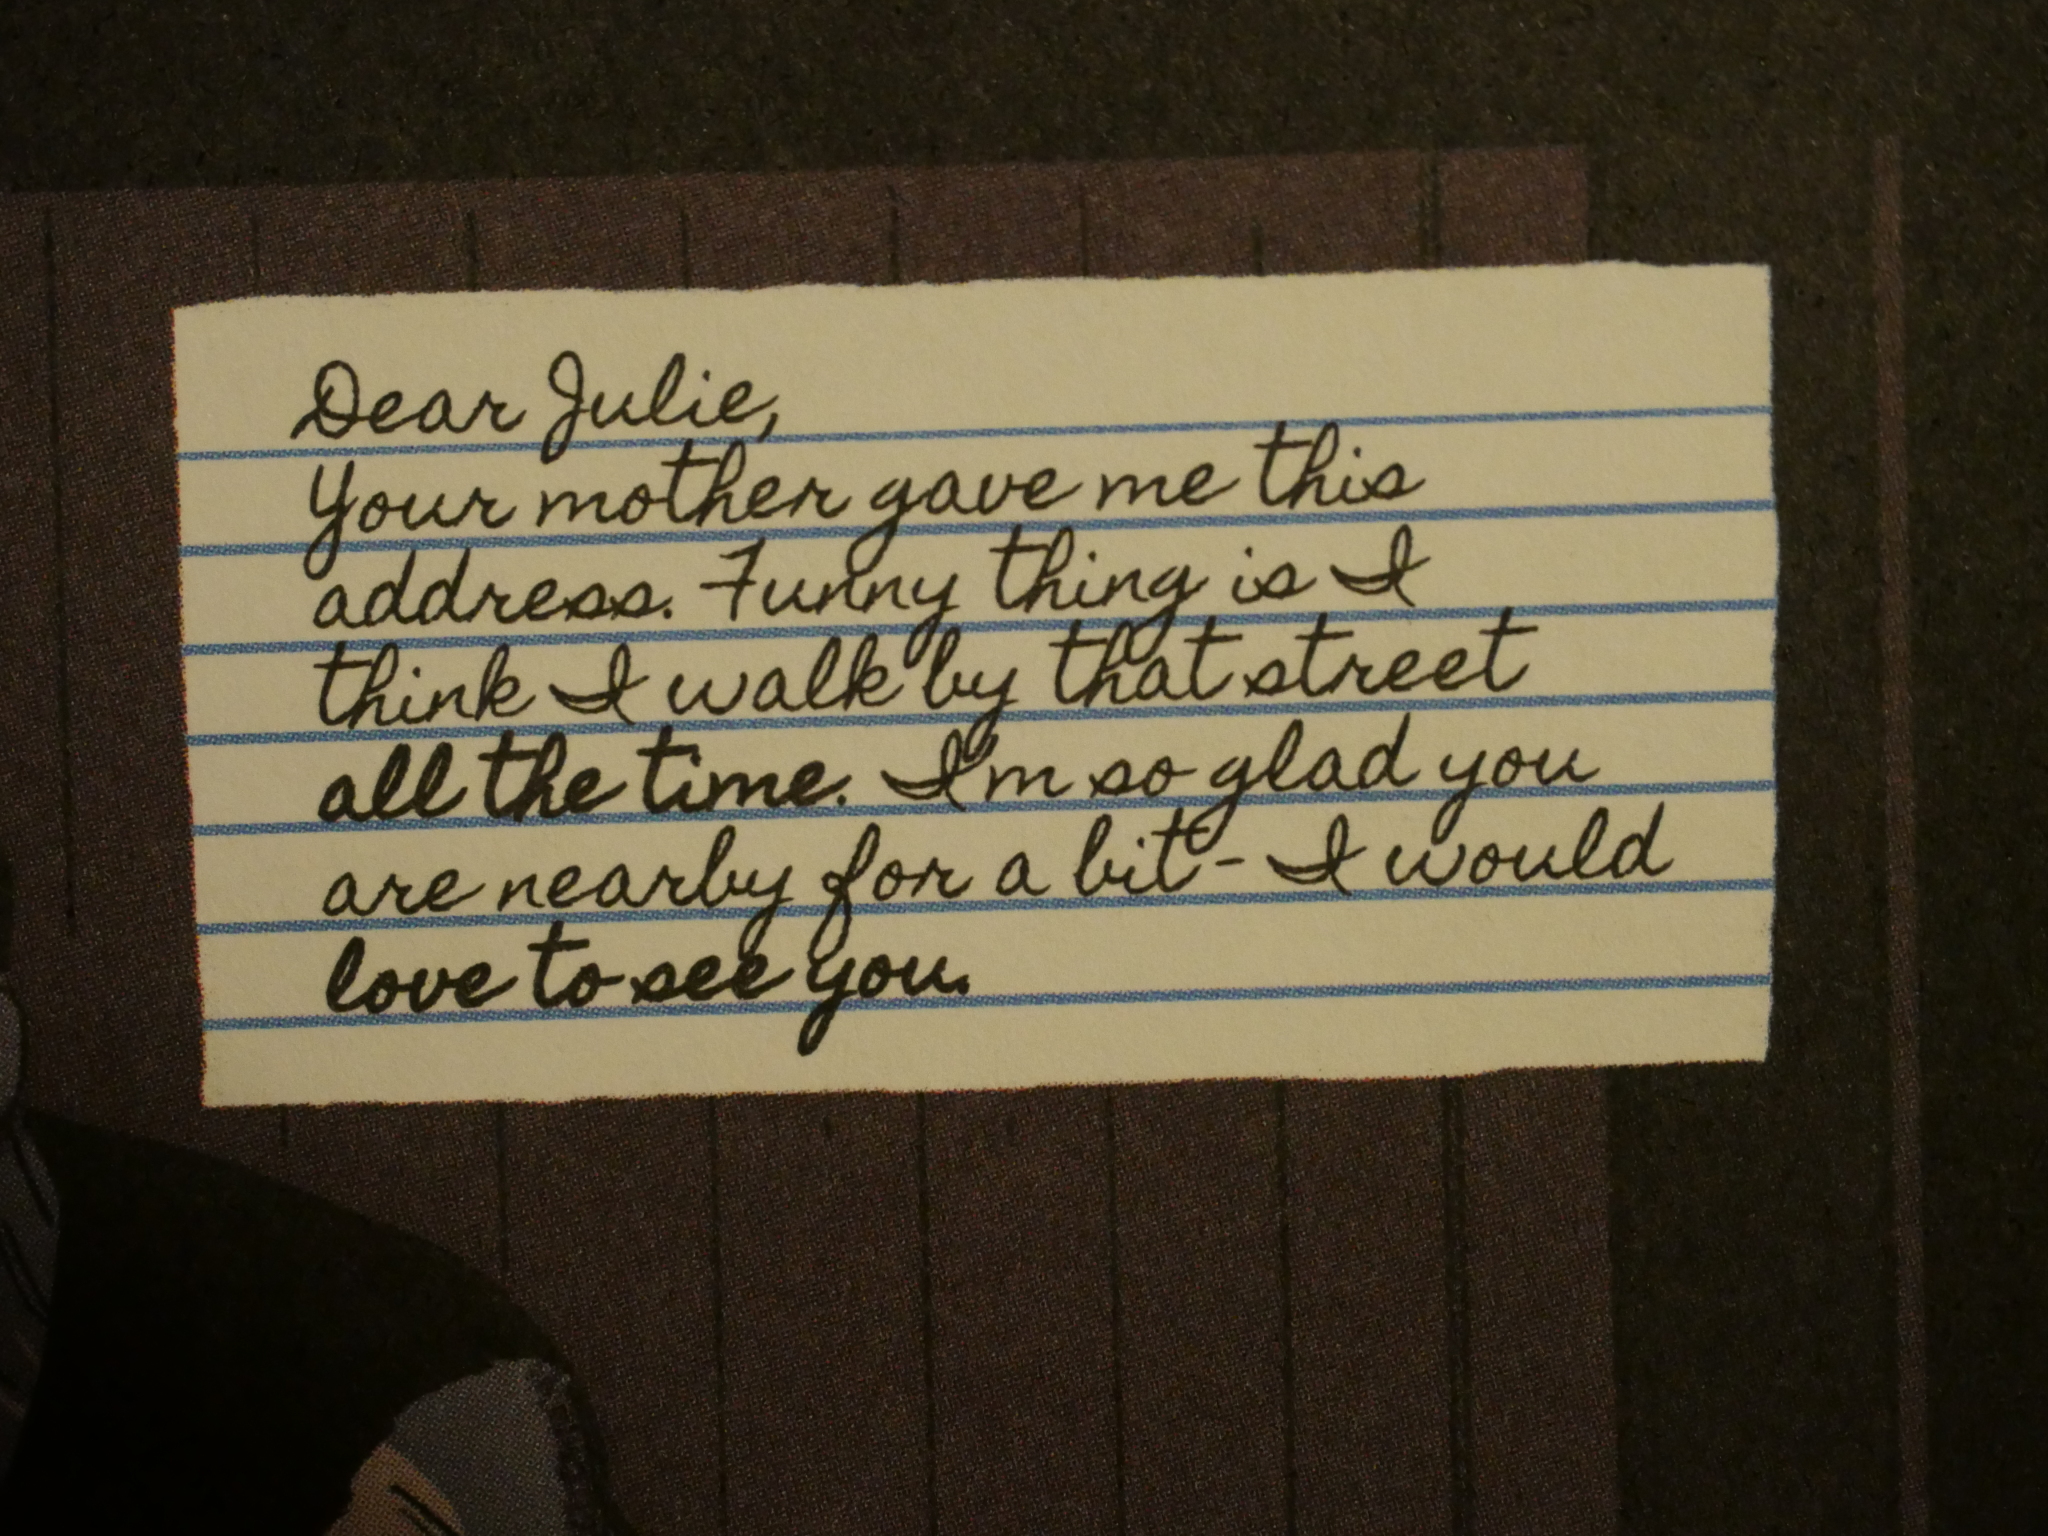 Dear Julie,
Your mother gave me this
address. Funny thing is I
think I walk by that street
all the time. I'm so glad you
are nearby for a bit - I would
love to see you.